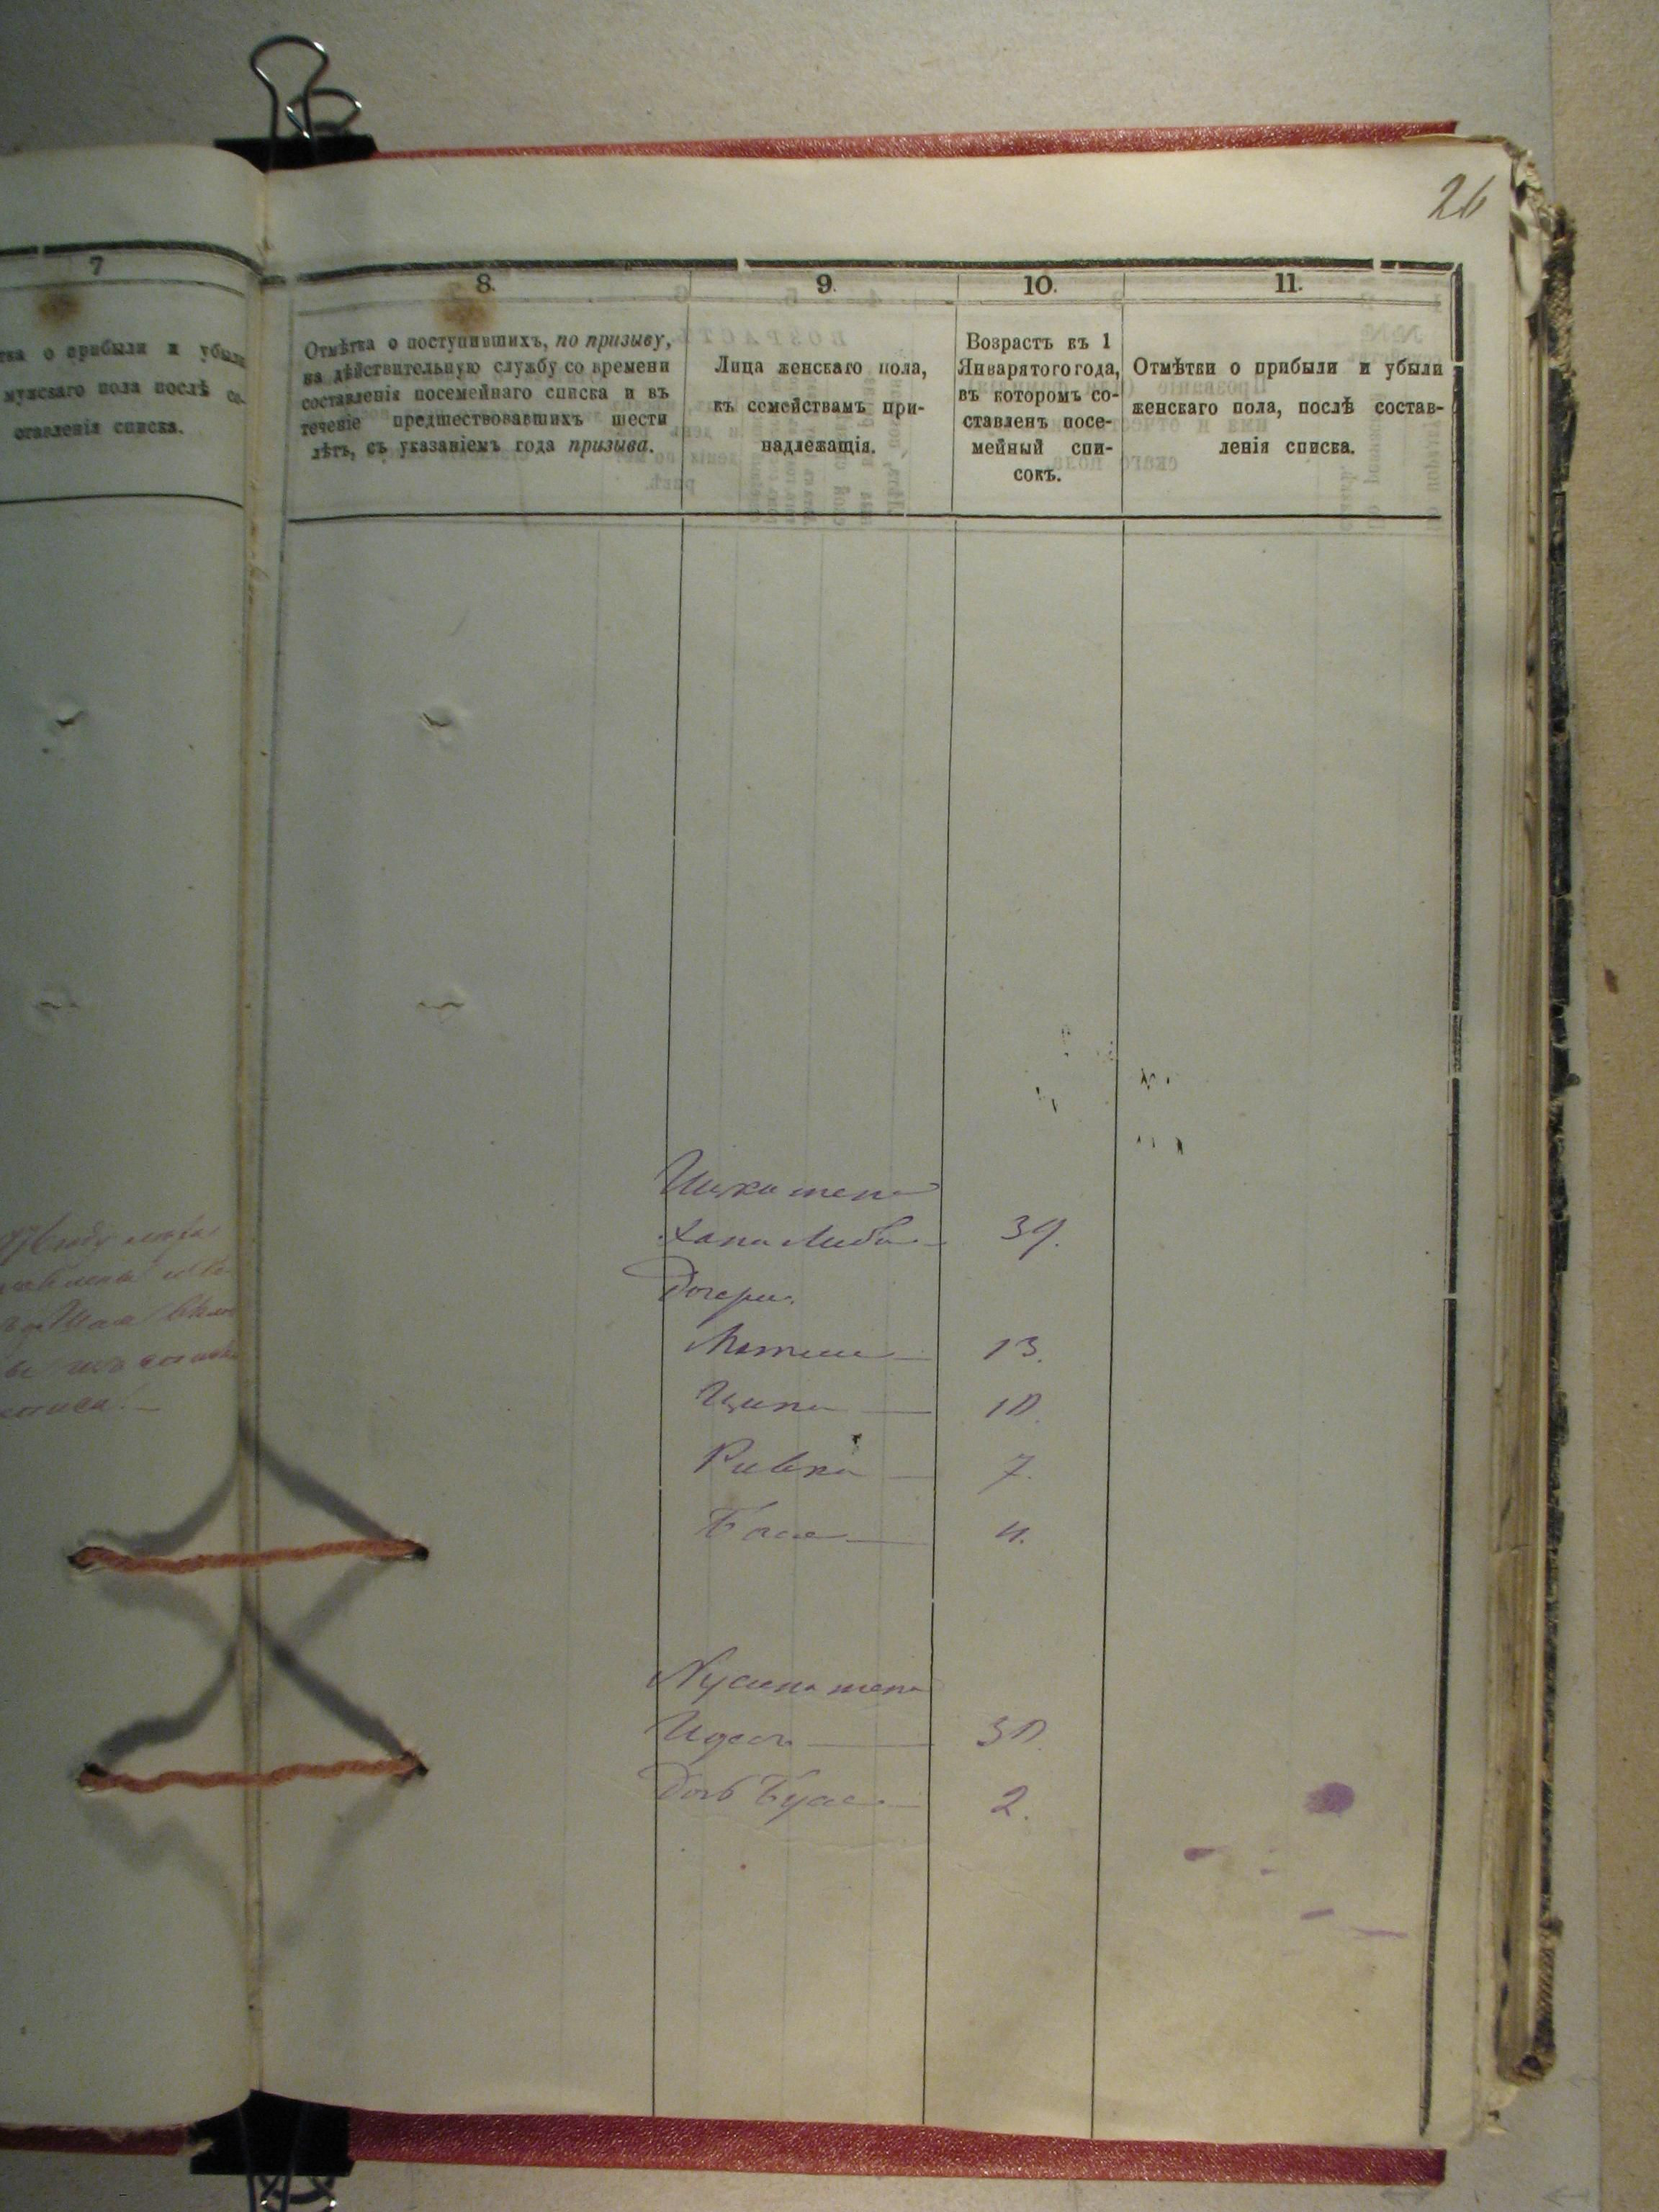 26
7
о прибыли и убыли
мужскаго пола послѣ со-
ставленія списка.
8.
Отмѣтка о поступившихъ, по призыву,
на дѣйствительную службу со времени
составленія посемейнаго списка и въ
теченіе предшествовавшихъ шести
лѣтъ, съ указаніемъ года призыва.
9.
Лица женскаго пола,
къ семействамъ при-
надлежащія.
10.
Возрастъ къ 1
Января того года,
въ которомъ со-
ставленъ посе-
мейный спи-
сокъ.
11.
Отмѣтки о прибыли и убыли
женскаго пола, послѣ состав-
ленія списка.
жена
Хана Либа 39.
Дочери.
13.
Ципа 10.
Ривка 7.
Бася 4.
Нусина жена
Идесъ 30.
Дочь Буся 2.